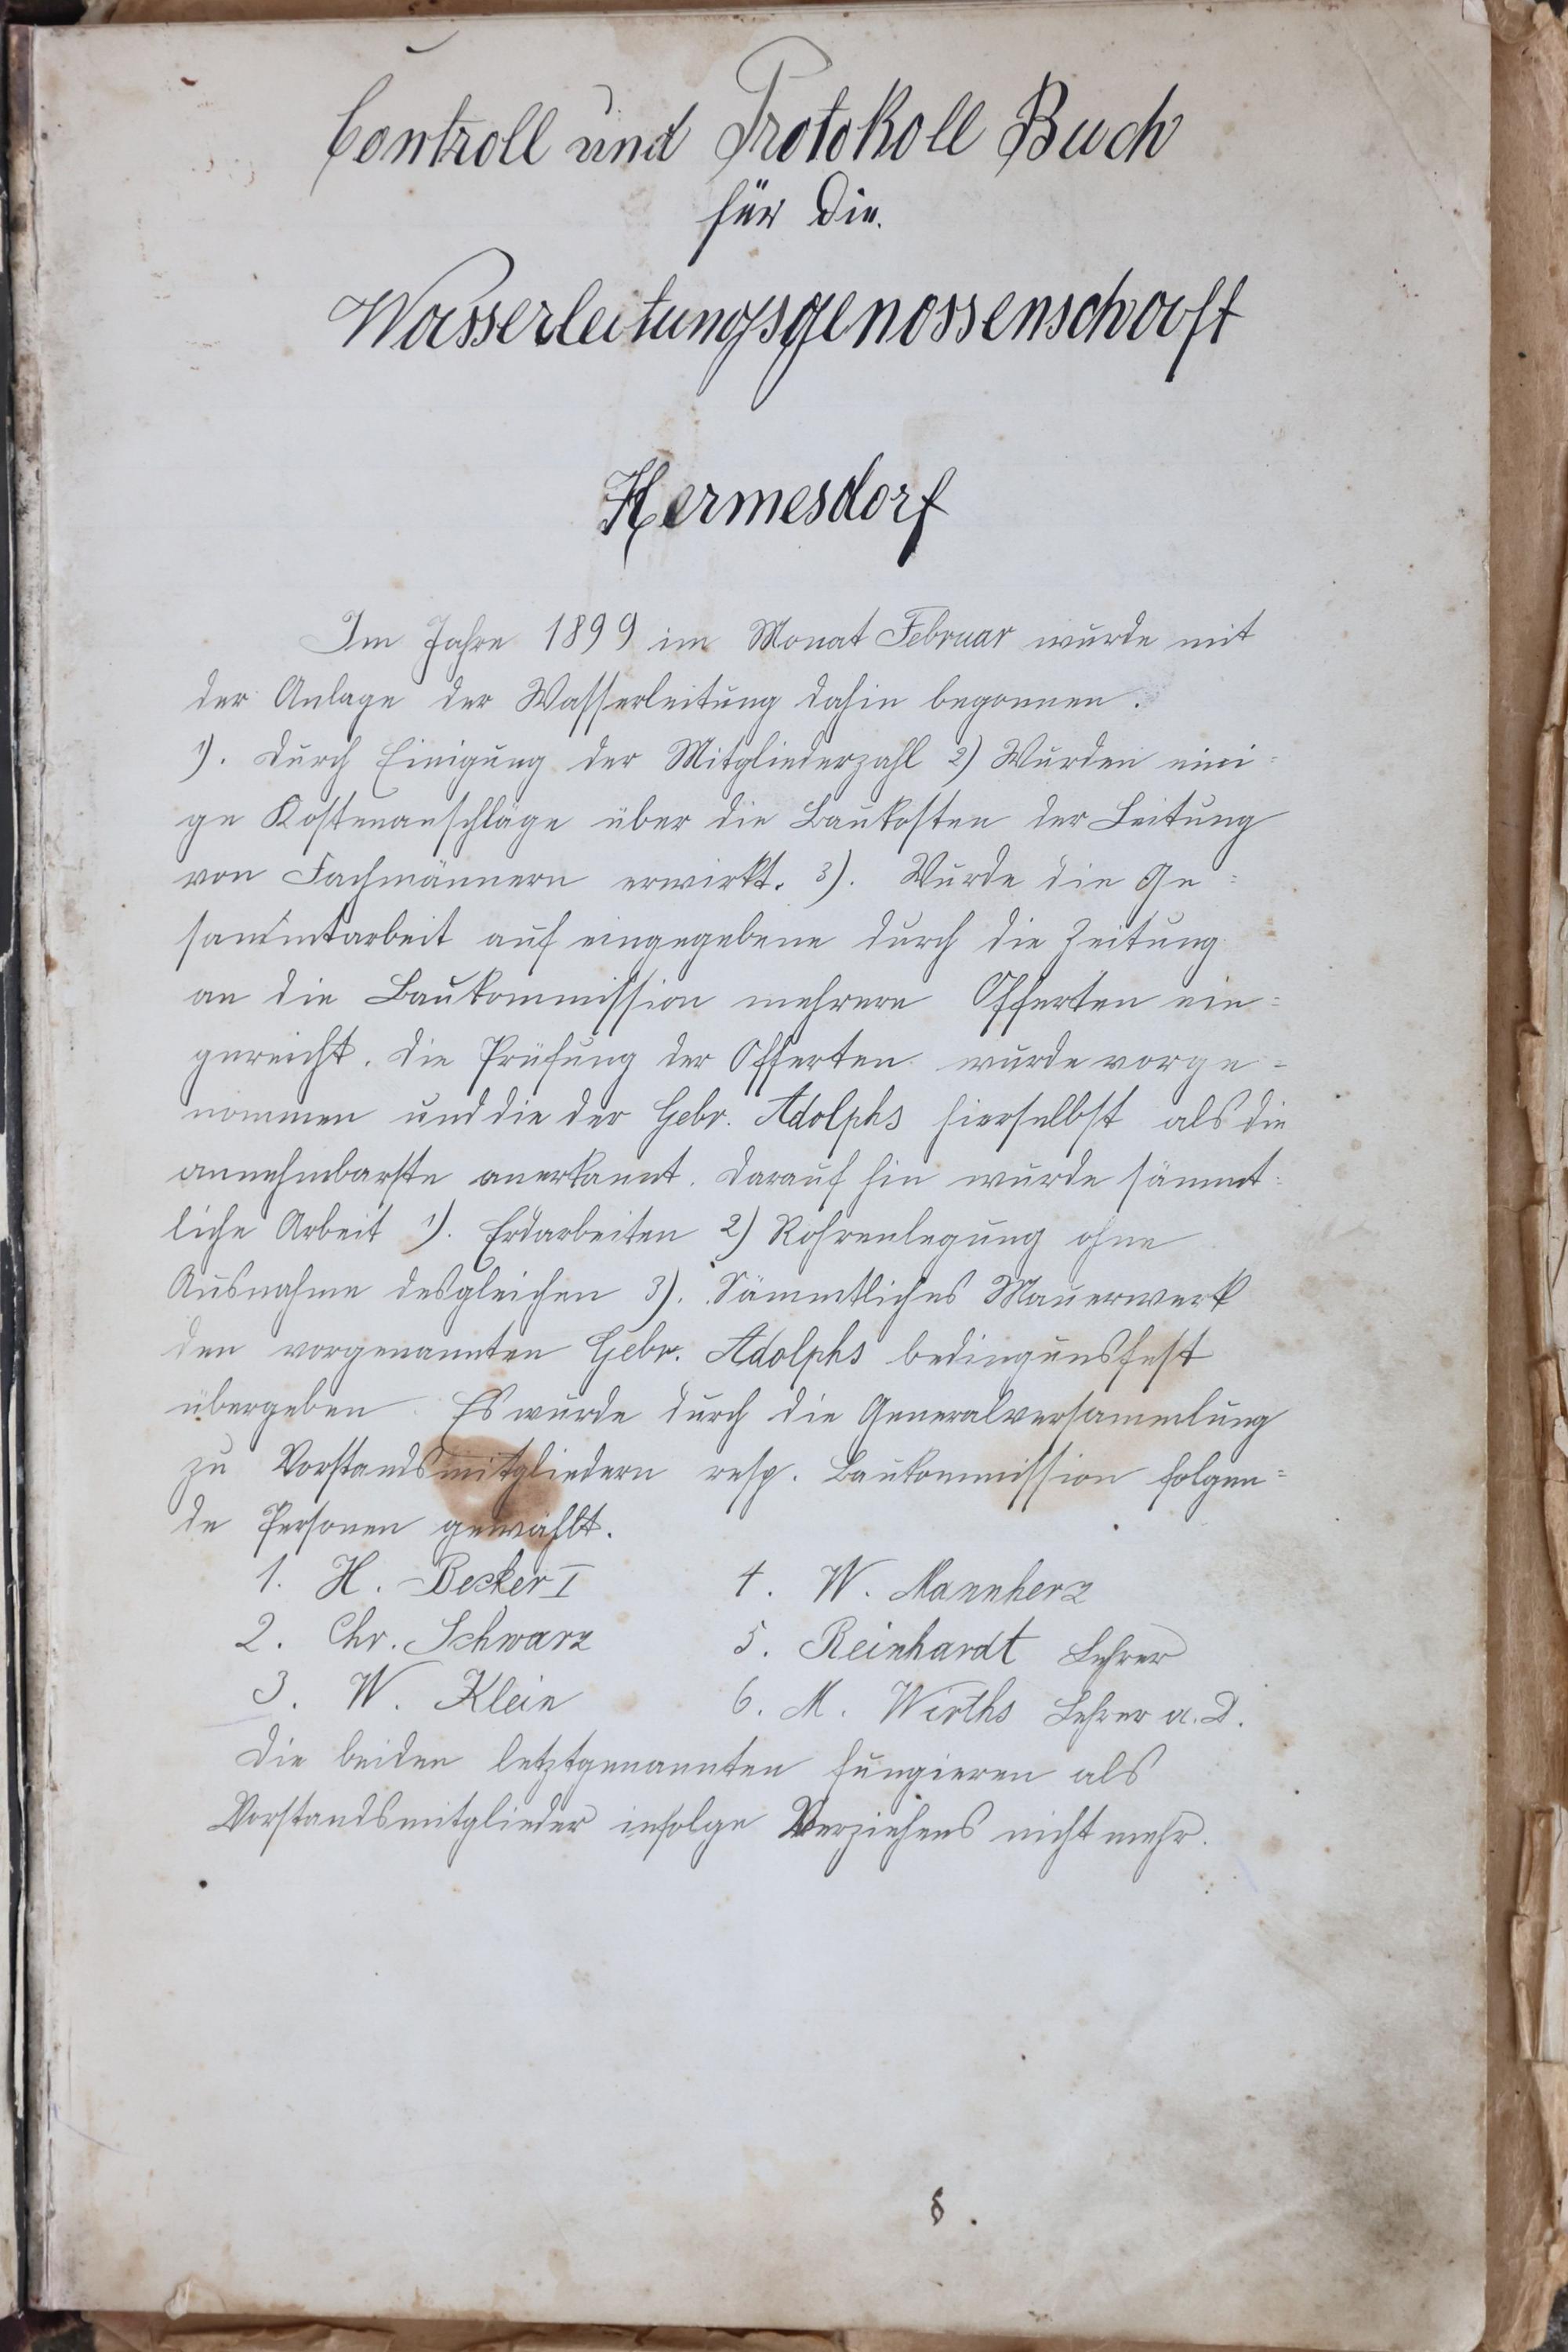 Controll und Protokoll Buch
für die.
Wasserleitungsgenossenschaft
Hermesdorf
Im Jahre 1899 im Monat Februar wurde mit
der Anlage der Wasserleitung dahin begonnen.
1). Durch Einigung der Mitgliederzahl 2) Wurden eini=
ge Kostenanschläge über die Baukosten der Leitung
von Fachmännern erwirkt. 3). Wurde die Ge=
sammtarbeit auf eingegebene durch die Zeitung
an die Baukommission mehrere Offerten ein=
gereicht. Die Prüfung der Offerten wurde vorge=
nommen und die der Gebr. Adolphs hierselbst als die
annehmbarste anerkannt. Darauf hin wurde sämmt=
liche Arbeit 1). Erdarbeiten 2) Rohrenlegung ohne
Ausnahme desgleichen 3). Sämmtliches Mauerwerk
den vorgenannten Gebr. Adolphs bedingunsfest
übergeben. Es wurde durch die Generalversammlung
zu Vorstandsmitgliedern resp. Baukommission folgen=
de Personen gewählt.
1. H. Becker I 4. W. Mannherz
2. Chr. Schwarz 5. Reinhardt Lehrer
3. W. Klein 6. M. Wirths Lehrer a. D.
Die beiden letztgenannten fungieren als
Vorstandsmitglieder infolge Verziehens nicht mehr.